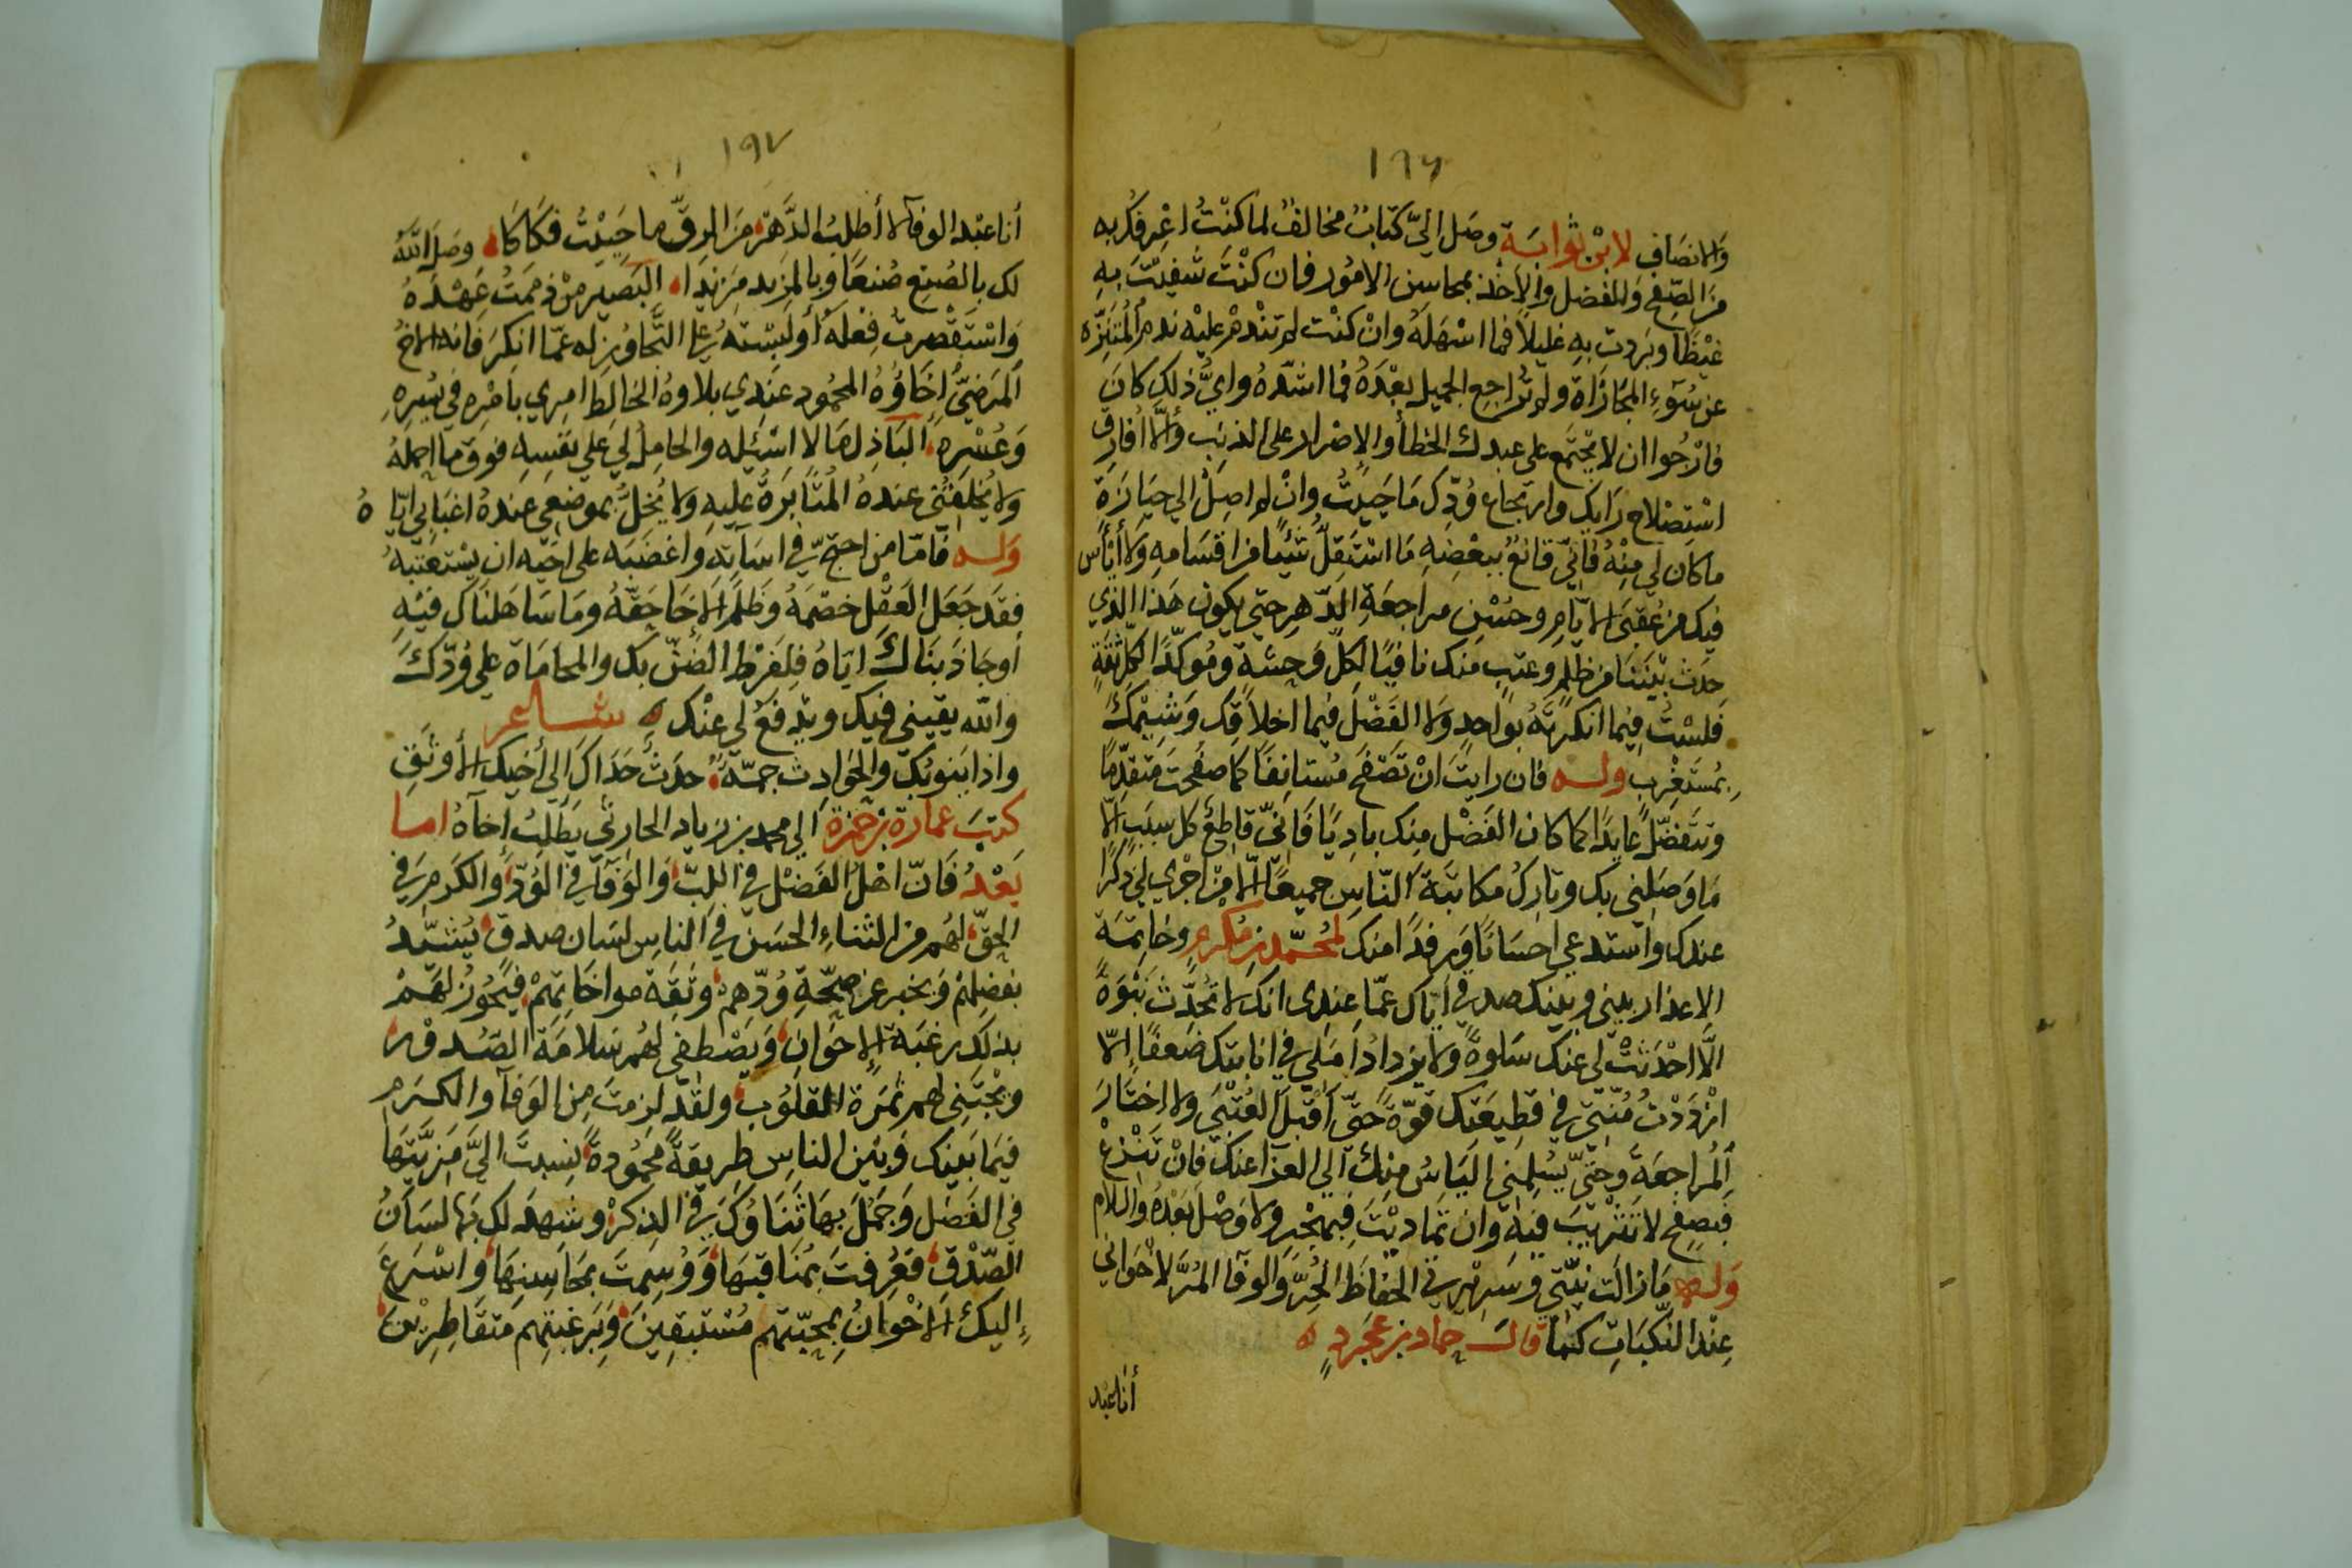 ١٩٦
والانصاف لابْن ثوابَة وصَل اليَّ كتابٌ مخالفٌ لما كنْتُ اعْرفك به
مزَ الصّفح وَالفضل والاخذ بمحاسِن الامُور فان كنْتَ شفيتَ بهِ
غيْظًا وبَردت بهِ غليلًا فما اسْهَلَهُ وانْ كنْت لم تنْدمْ عليْه ندم المُتنزّه
عن سُوَءِ المجَازاة ولم تُراجع الجميل بعْدَهُ فما اشدّهُ وايُّ ذلك كانَ
فارْجُوا ان لا يجْتَمع على عبدك الخطأُ والاصْرار على الذنبِ وَألَّا أُفارق
اسْتِصْلاح رَايك وارتجاع وُدّك مَا حَييْتُ وانْ لم اصِلْ الي حيَازَةِ
ما كان لي مِنْهُ فانّي قانعٌ ببعْضِهِ مَا اسْتَقِلُّ شيْئًا مزا قسَامهِ وَلا أيْأس
فيك مز عُقبَى الايّامِ وحُسْنِ مراجعَةِ الدّهرِ حتي يكون هَذا الذي
حَدث بيْننَا مز ظلمٍ وعتبٍ منك نافيًا لكلّ وَحشة ومُوَكّدًا لكل ثقةٍ
فلسْتُ فيما انكرْتهُ بواحدٍ وَلا الفَضْلُ فيما اخلاقك وَشيَمكَ
بمُسْتَغْرب ولــه فان رايتَ انْ تَصْفحَ مُستانفًا كما صفحتَ متقدّمًا
وتتفضّل عَايدًا كما كان الفَضْل منِك بادِيًا فَانيّ قاطعٌ كل سبَبٍ الَّا
مَا وَصَلنِي بك وتاركٌ مكاتبَة النّاسِ جميعًا الّا مِنْ اجْري لي ذكرًا
عندك واسْتدعي احسَانًا وَرفدًا منك لمُحمّد بز مُكرم وخاتمَة
الاعذار بيني وبينك صد في ايّاك عمّا عِندِى انك لا تُحدّث نَبْوَةً
الَّا احْدَثتْ لي عنِك سَلوةً ولا يزدادُ امَلي في انابتك ضَعفًا إلّا
ازْدَدْتُ مُنّتي في قطِيعَتك قوّةً حَتّى اَقْبَلَ العُتْبَي ولا اختَارَ
المُراجعَة وحتّي يُسْلمَني اليَأسُ منِكَ الي العزآ عنك فانْ تَنْزعْ
فصفح لا تَثْريْبَ فيه وان تمَاديْتَ فهجْر ولا وَصْلَ بَعْدَهُ والسلام
وَلــه مَا زالَت نيّتي وسَرِيْرتي في الحِفاظ الحُرّ وَالوفا المُرّ لاخْوَاني
عِنْدَ النّكبَاتِ كما قالــ حماد بز عجرَد ٍ
أنا عبْد
١٩٧
أنا عبْد الوفآء لا أطْلبُ الدَّهرَ مزَ الرقّ ما حَييْتُ فكَاكا وصَلَ اللهُ
لك بالصُنع صُنعًا وبالمزيد مَزيدًا البَصير مِنْ ذممتُ عَهْدَهُ
وَاسْتقْصرتُ فِعْلهُ أو لبسْتهُ علي التّجاوُز له عمّا انكرَ فانه الاخُ
المَرضيُّ اِخَاؤُهُ المحْمُود عندي بلاوهُ الخالطُ امري بامْره في يُسْرهِ
وَعُسْره البَاذل لمَا لا اسْئله والحامِلُ لي علي نفسِهِ فوق ما احملهُ
ولا يُخلِفُني عندهُ المُثَابَرَةُ عليهِ ولا يُخلُّ بموضعِي عندهُ اغبَابي ايّاهُ
وَلــه فامّا مز احتجّ في اسَآتهِ وَاغضَبَه على اخيْه ان يسْتعتبهُ
فقد جَعَل العَقْل خصْمَهُ وظلمَ الاخآ حَقّهُ ومَا سَاهَلناك فيْهِ
أوجَاذَبنَاكَ ايّاهُ فلِفرْط الضَنّ بك والمحامَاة علي وُدّكَ
والله يقيني فيك ويدفعُ لي عنْك شــاعــر
واذا يَنوبُك والحَوادِث جَمّةٌ حَدثٌ حَدَاكَ الي أخيْك الأوثقِ
كتبَ عمارة بز حمْزة الي محمد بز زياد الحارثي يَطلبُ اخآهُ امــا
بَعْدُ فَانّ اهْلَ الفَضْل في اللبّ وَالوَفآ في الوُدّ وَالكرَم في
الحَقّ لهُم مز الثناءِ الحَسَنِ في الناسِ لسَان صدق يُشِيْدُ
بفضلِهمْ وَيخبر عز صِحّةِ وُدّهم وثقةِ مواخاتِهمْ فيَحُوزُ لهُمْ
بذلك رغبَة الاخوَانِ وَيصْطفي لهُم سَلامَة الصّدورِ
ويجْتَني لهم ثمرَة القلوُب ولقَد لزِمتَ مِن الوَفآ والكَرَم
فيمَا بَينك وَبيْن الناسِ طريقةً محمُودةً نسِبتَ اليَّ مَزيّتهَا
في الفَضل وَجمُلَ بهَا ثنَاوُكَ في الذكرْ وشهدَ لك بهَا لسَانُ
الصّدْق فعُرفتَ بمنَاقبهَا وَوُسِمتَ بمَحَاسِنهَا وَاسْرَعَ
إليكَ الاخْوانُ بمحبّتهم مُسْتبقِينَ وَبرَغبَتِهم متقَاطِرِيْنَ